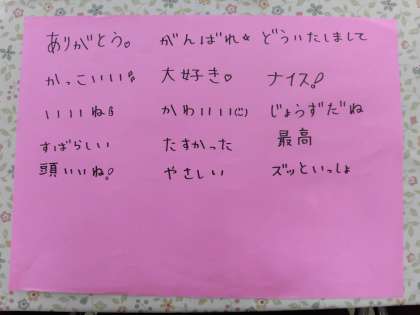 ありがとう。 がんばれ☆ どういたしまして
かっこいい! 大好き♡ ナイス!
いいね! かわいい(¨) じょうずだね
すばらしい たすかった 最高
頭いいね! やさしい ズッといっしょ